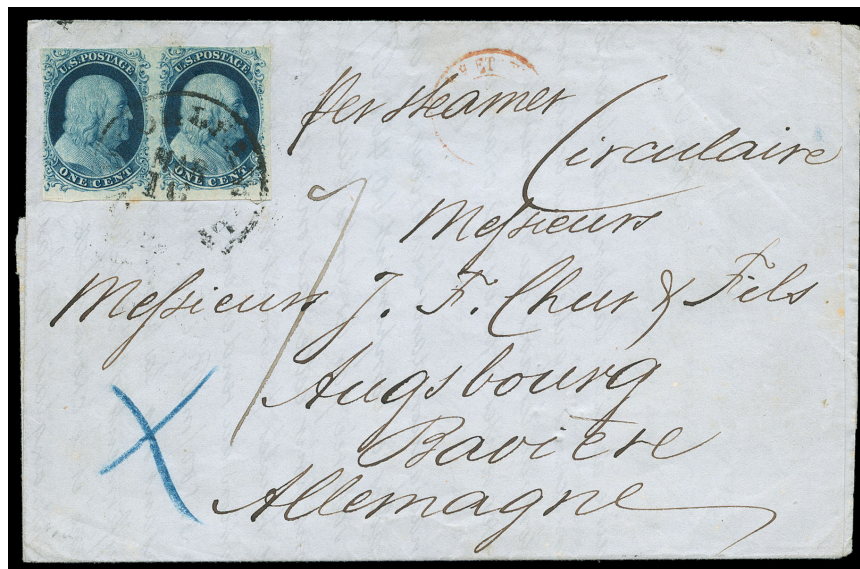 U.S. POSTAGE U.S. POSTAGE
ONE CENT ONE CENT
MAR
16
ET
Per steamer
Circulaire
Messieurs
Messieurs J. F. Chur & Fils
Augsbourg
Bavière
Allemagne